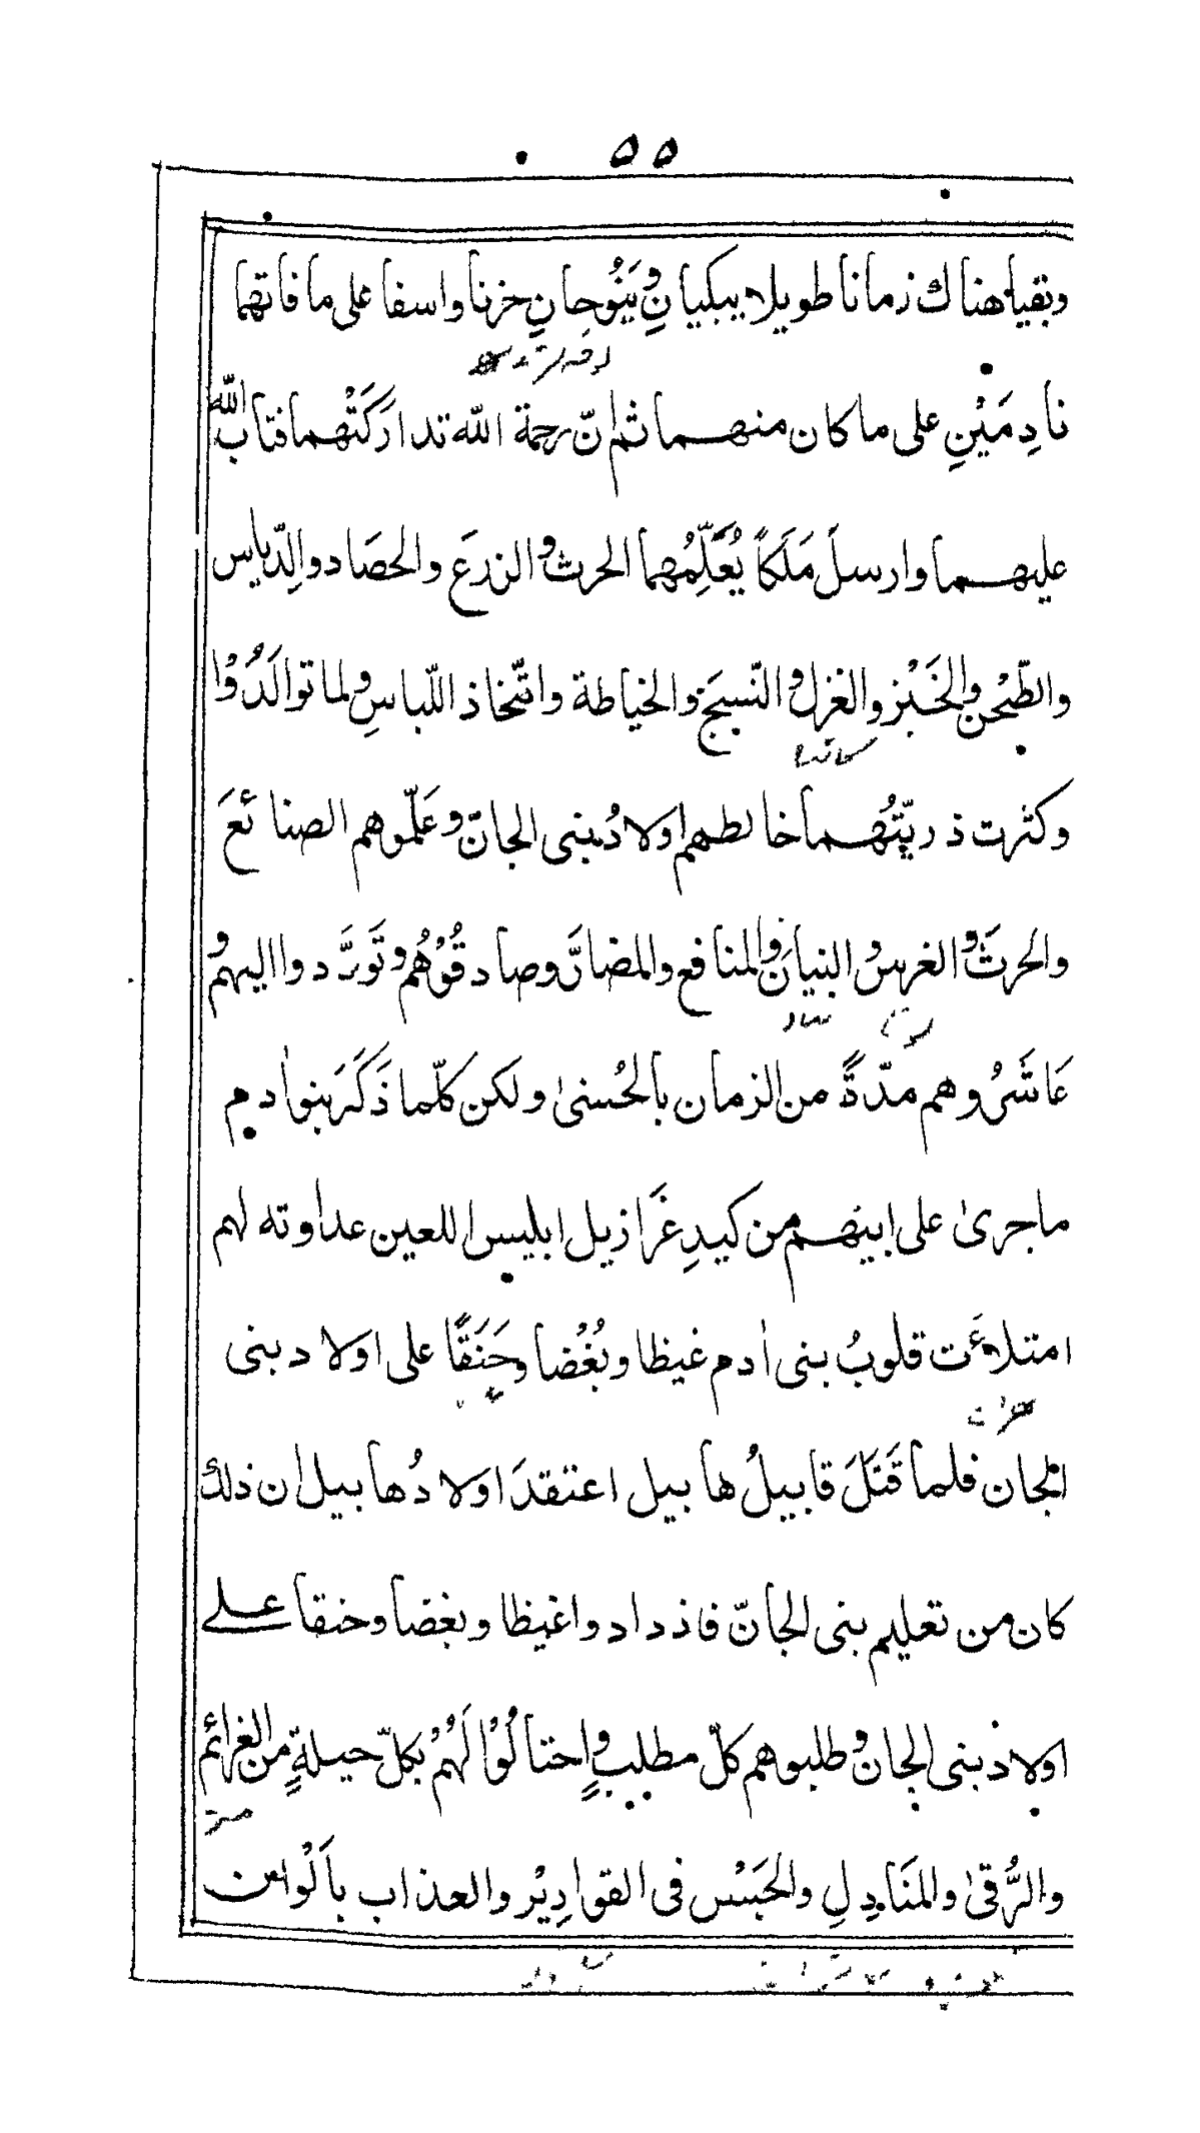 ٥٥
وبقياهناك زمانا طويلا يبكيانِ ويَنُوحانِ حزنا واسفا على ما فاتهما
نادِمَيْنِ على ما كان منهما ثم انّ رحمة اللّه تداركَتْهما فتاب اللّه
عليهما وارسلَ مَلَكاً يُعَلِّمُهما الحرث والزرعَ والحصَاد والدِّياس
والطّحْن والخَبْز والغزل والنّسجَ والخياطة واتّخاذ اللّباسِ ولما توالَدُوْا
وكثرت ذريّتُهما خالطهم اولادُ بنى الجانّ وعَلّموهم الصنائعَ
والحرثَ والغرس والبنيانَ والمنافع والمضارَّ وصادقُوْهُم وتَوَرَّدوا اليهم و
عَاشَرُوهم مدّةً من الزمان بالحُسنىٰ ولكن كلّما ذَكَرَ بنو اٰدم
ما جرىٰ على ابيهم من كيدِ عَزازيل ابليس اللعين عداوته لهم
امتلأَت قلوبُ بنى اٰدم غيظا وبُغُضا وحَنَقًا على اولاد بنى
الجان فلما قَتَلَ قابيلُ هابيل اعتقدَ اولادُ هابيل ان ذلك
كان من تعليم بنى الجانّ فازدادوا غيظا وبغضا وحنقا على
اولاد بنى الجان وطلبوهم كلّ مطلبٍ واحتالُوْا لَهُمْ بكلّ حيلةٍ من العزائم
والرُّقىٰ والمنَادِلِ والحَبَسْ فى القوارِيْر والعذاب بأَلْوان